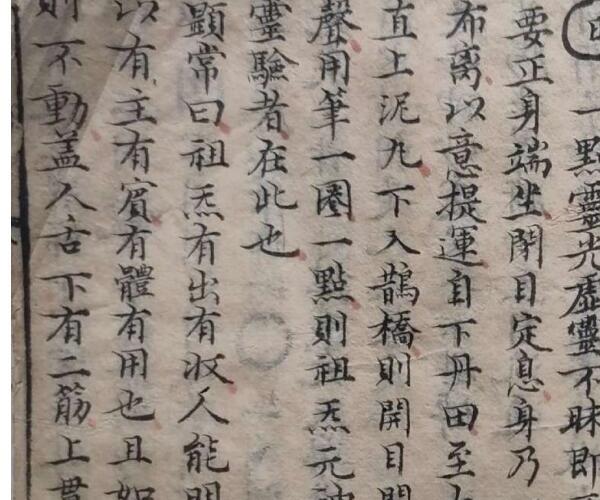 一點靈光虛靈不昧即
要正身端坐閉目定息身乃
布离以意提運自下丹田至
直上泥丸下入鵲橋則開目
聲用筆一圈一點則祖炁元神
靈驗者在此也
顯常曰祖炁有出有收人能明
以有主有賓有體有用也且如
則不動盖人舌下有二筋上貫